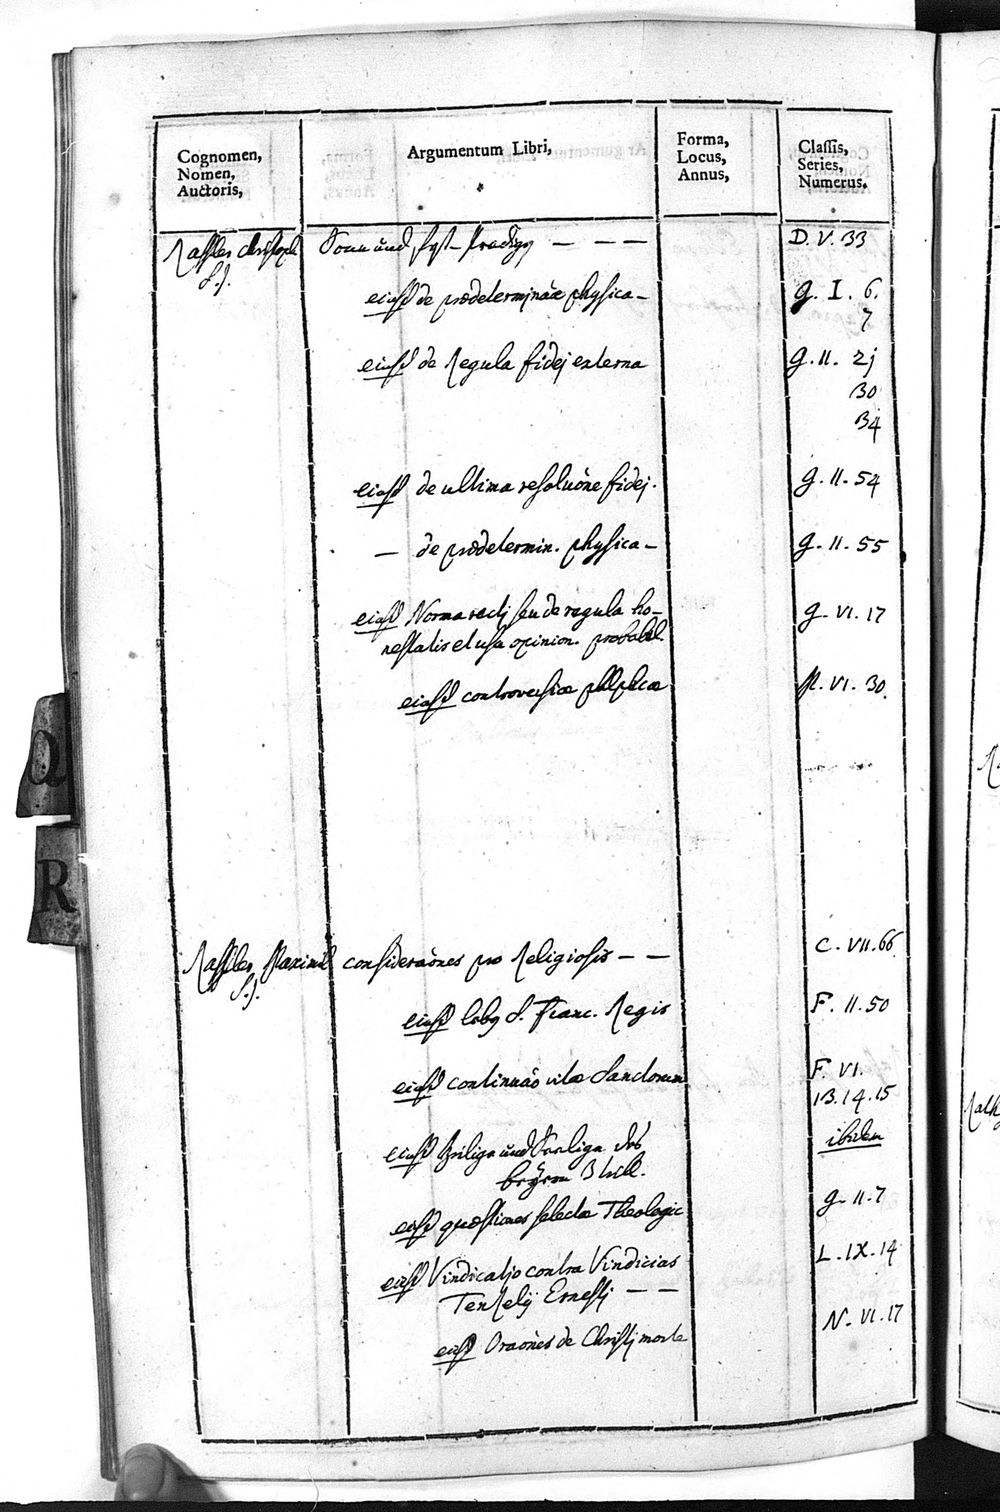 Cognomen,
Nomen,
Auctoris,
Argumentum Libri,
Forma,
Locus,
Annus,
Classis,
Series,
Numerus.
Rassler Christoph Sonn und fest Predigg — — — D. V. 33
S.J.
eiusd de prædeterminãoe physica - G. I. 6.
7
eiusd de Regula fidej externa G. II. 2j
30
34
eiusd de ultima resoluòne fidej. G. II. 54
— de prædetermin. physica - G. II. 55
eiusd Norma recti seu de regula ho- G. VI. 17
nestatis et usu opinion. probabil.
eiusd controversiæ phlphicæ M. VI. 30.
Rassler Maximil consideraònes pro Religiosis — — C. VII. 66
S.J.
eiusd lobg S. Franc. Regis F. II. 50
eiusd continuão vitæ Sanctorum F. VI.
13. 14. 15
eiusd heilige und Seelige des ibidem
beyern 3 theil.
eiusd quæstiones selectæ Theologic G. II. 7
eiusd Vindicatjo contra Vindicias L. IX. 14
Tenzelij Ernesti — —
eiusd Oraònes de Christj morte N. VI. 17
Q
R